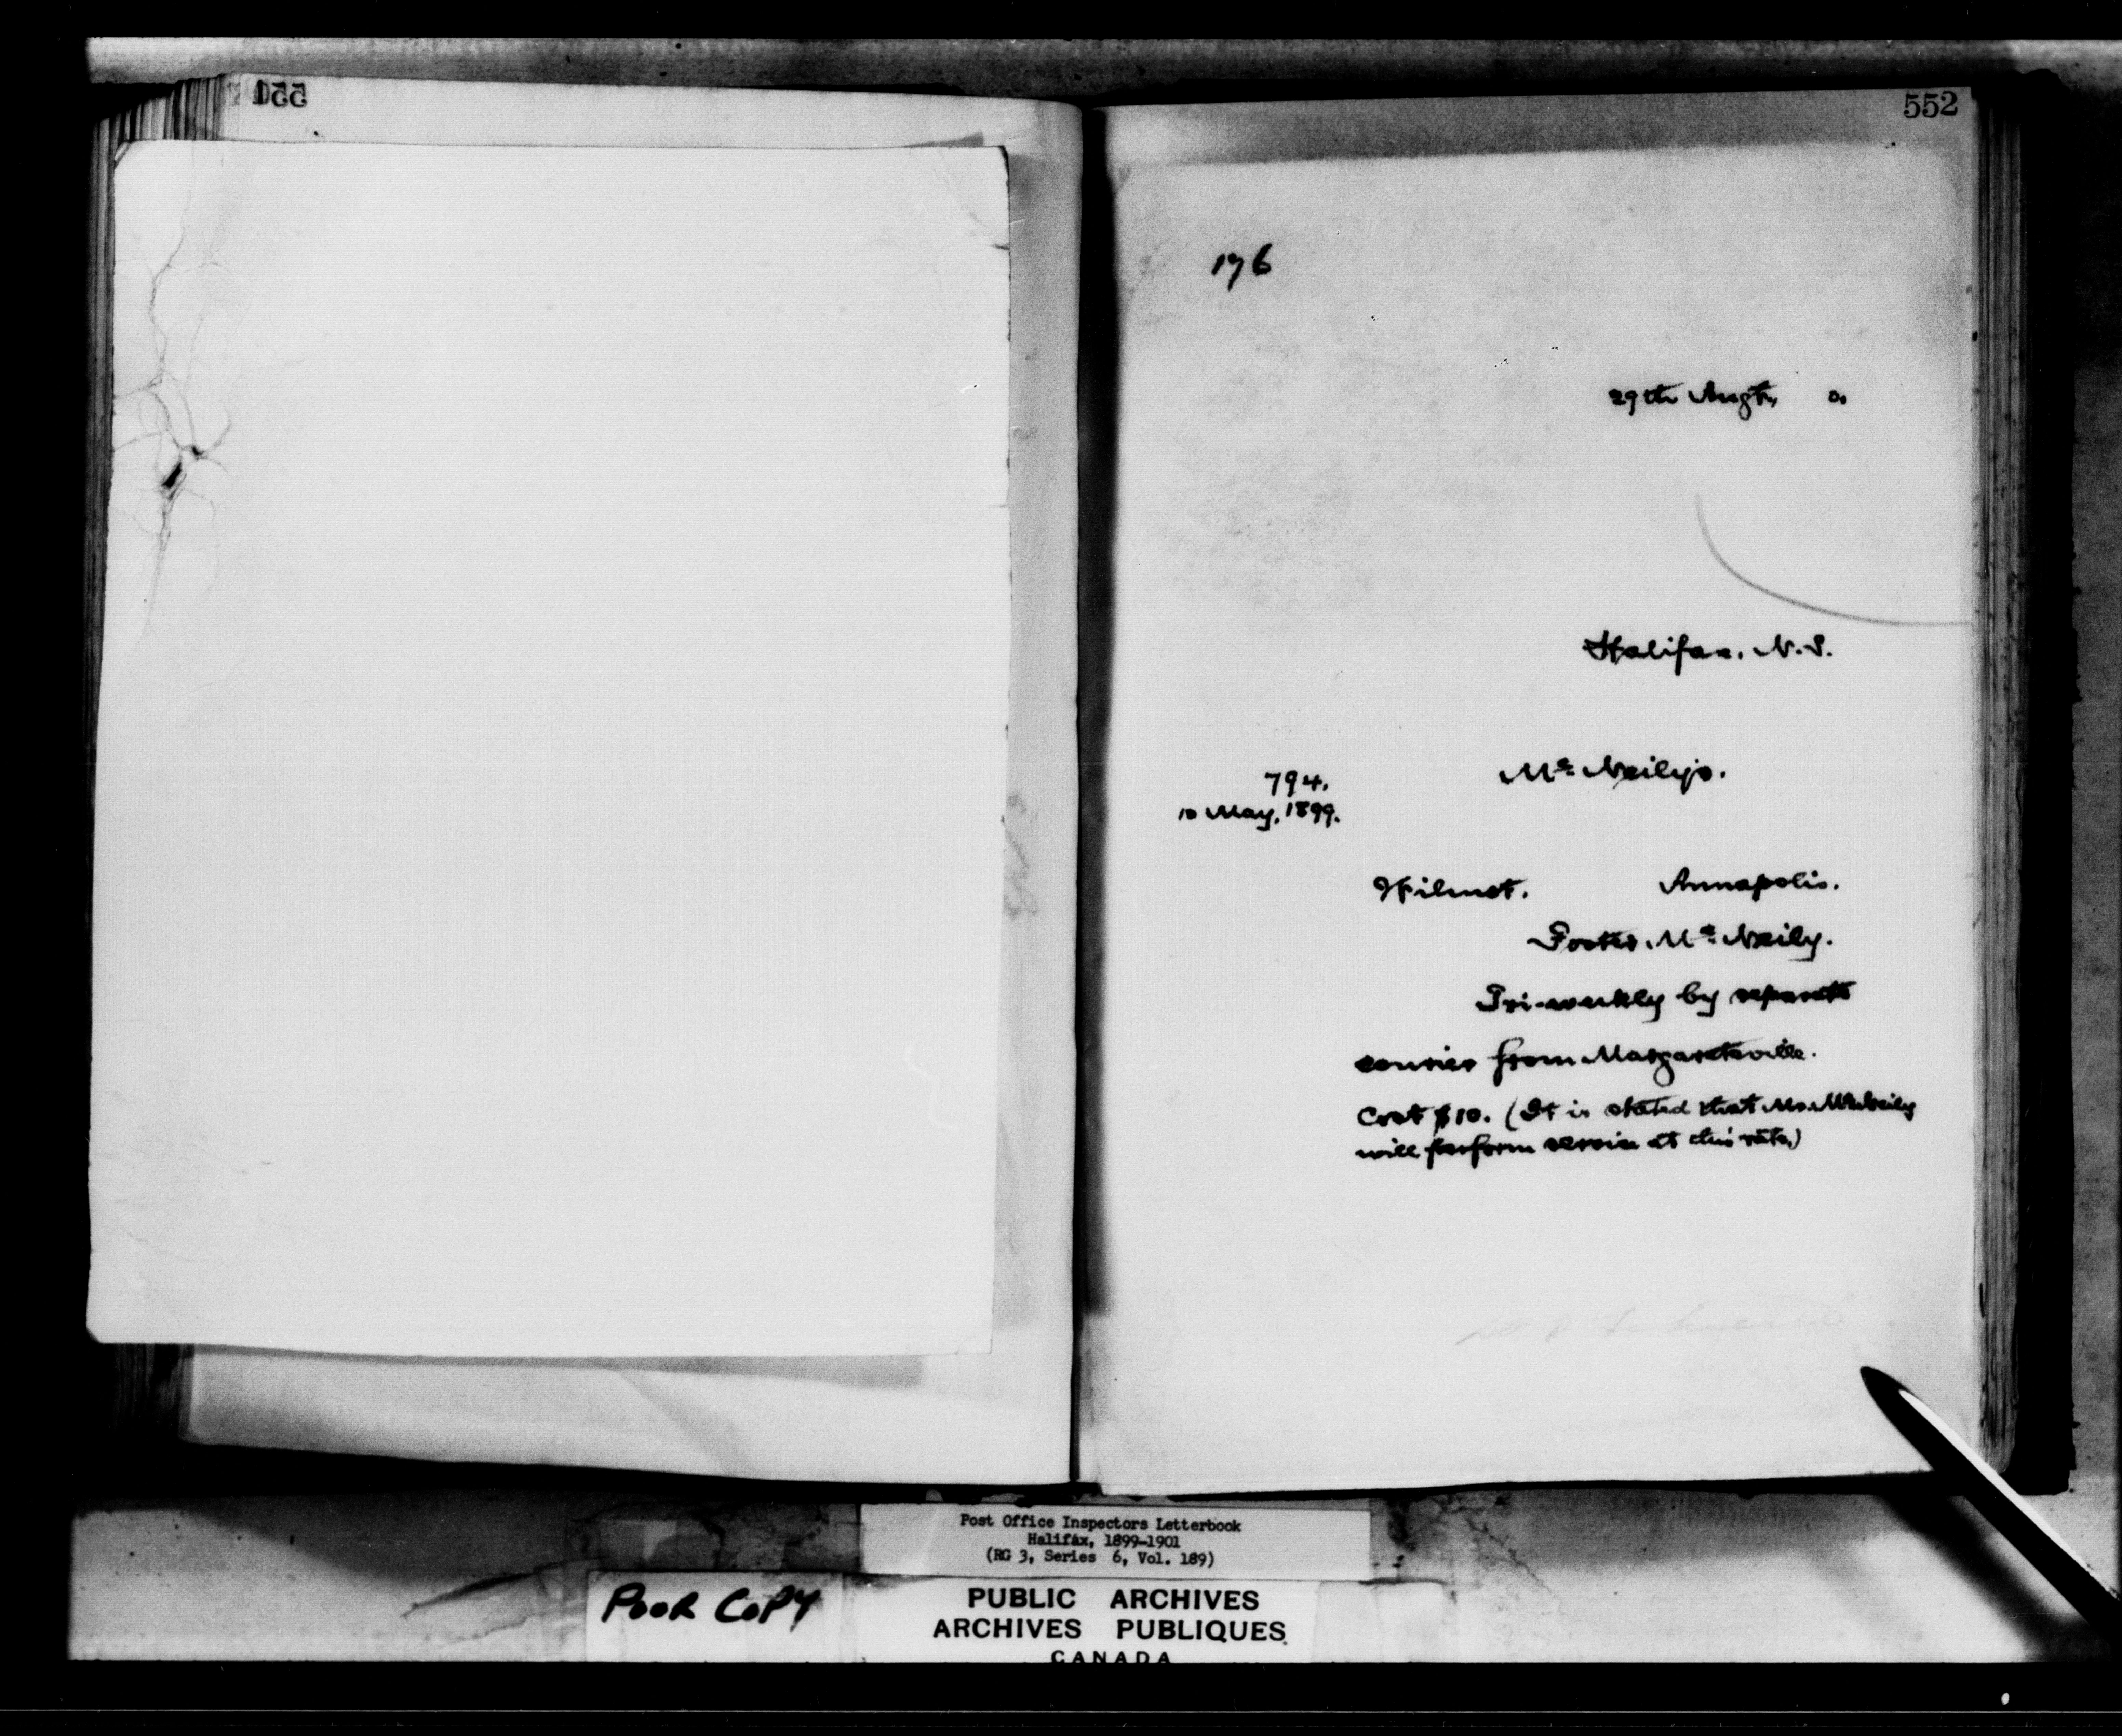 551
552
176
29th Augt, 0.
Halifax. N.S.
794. McNeily's.
10 May, 1899.
Wilmot. Annapolis.
Foster McNeily.
Tri-weekly by separate
courier from Margaretville.
Cost $10. (It is stated that Mr. McNeily
will perform service at this rate.)
Post Office Inspectors Letterbook
Halifax, 1899-1901
(RG 3, Series 6, Vol. 189)
POOR COPY
PUBLIC ARCHIVES
ARCHIVES PUBLIQUES
CANADA